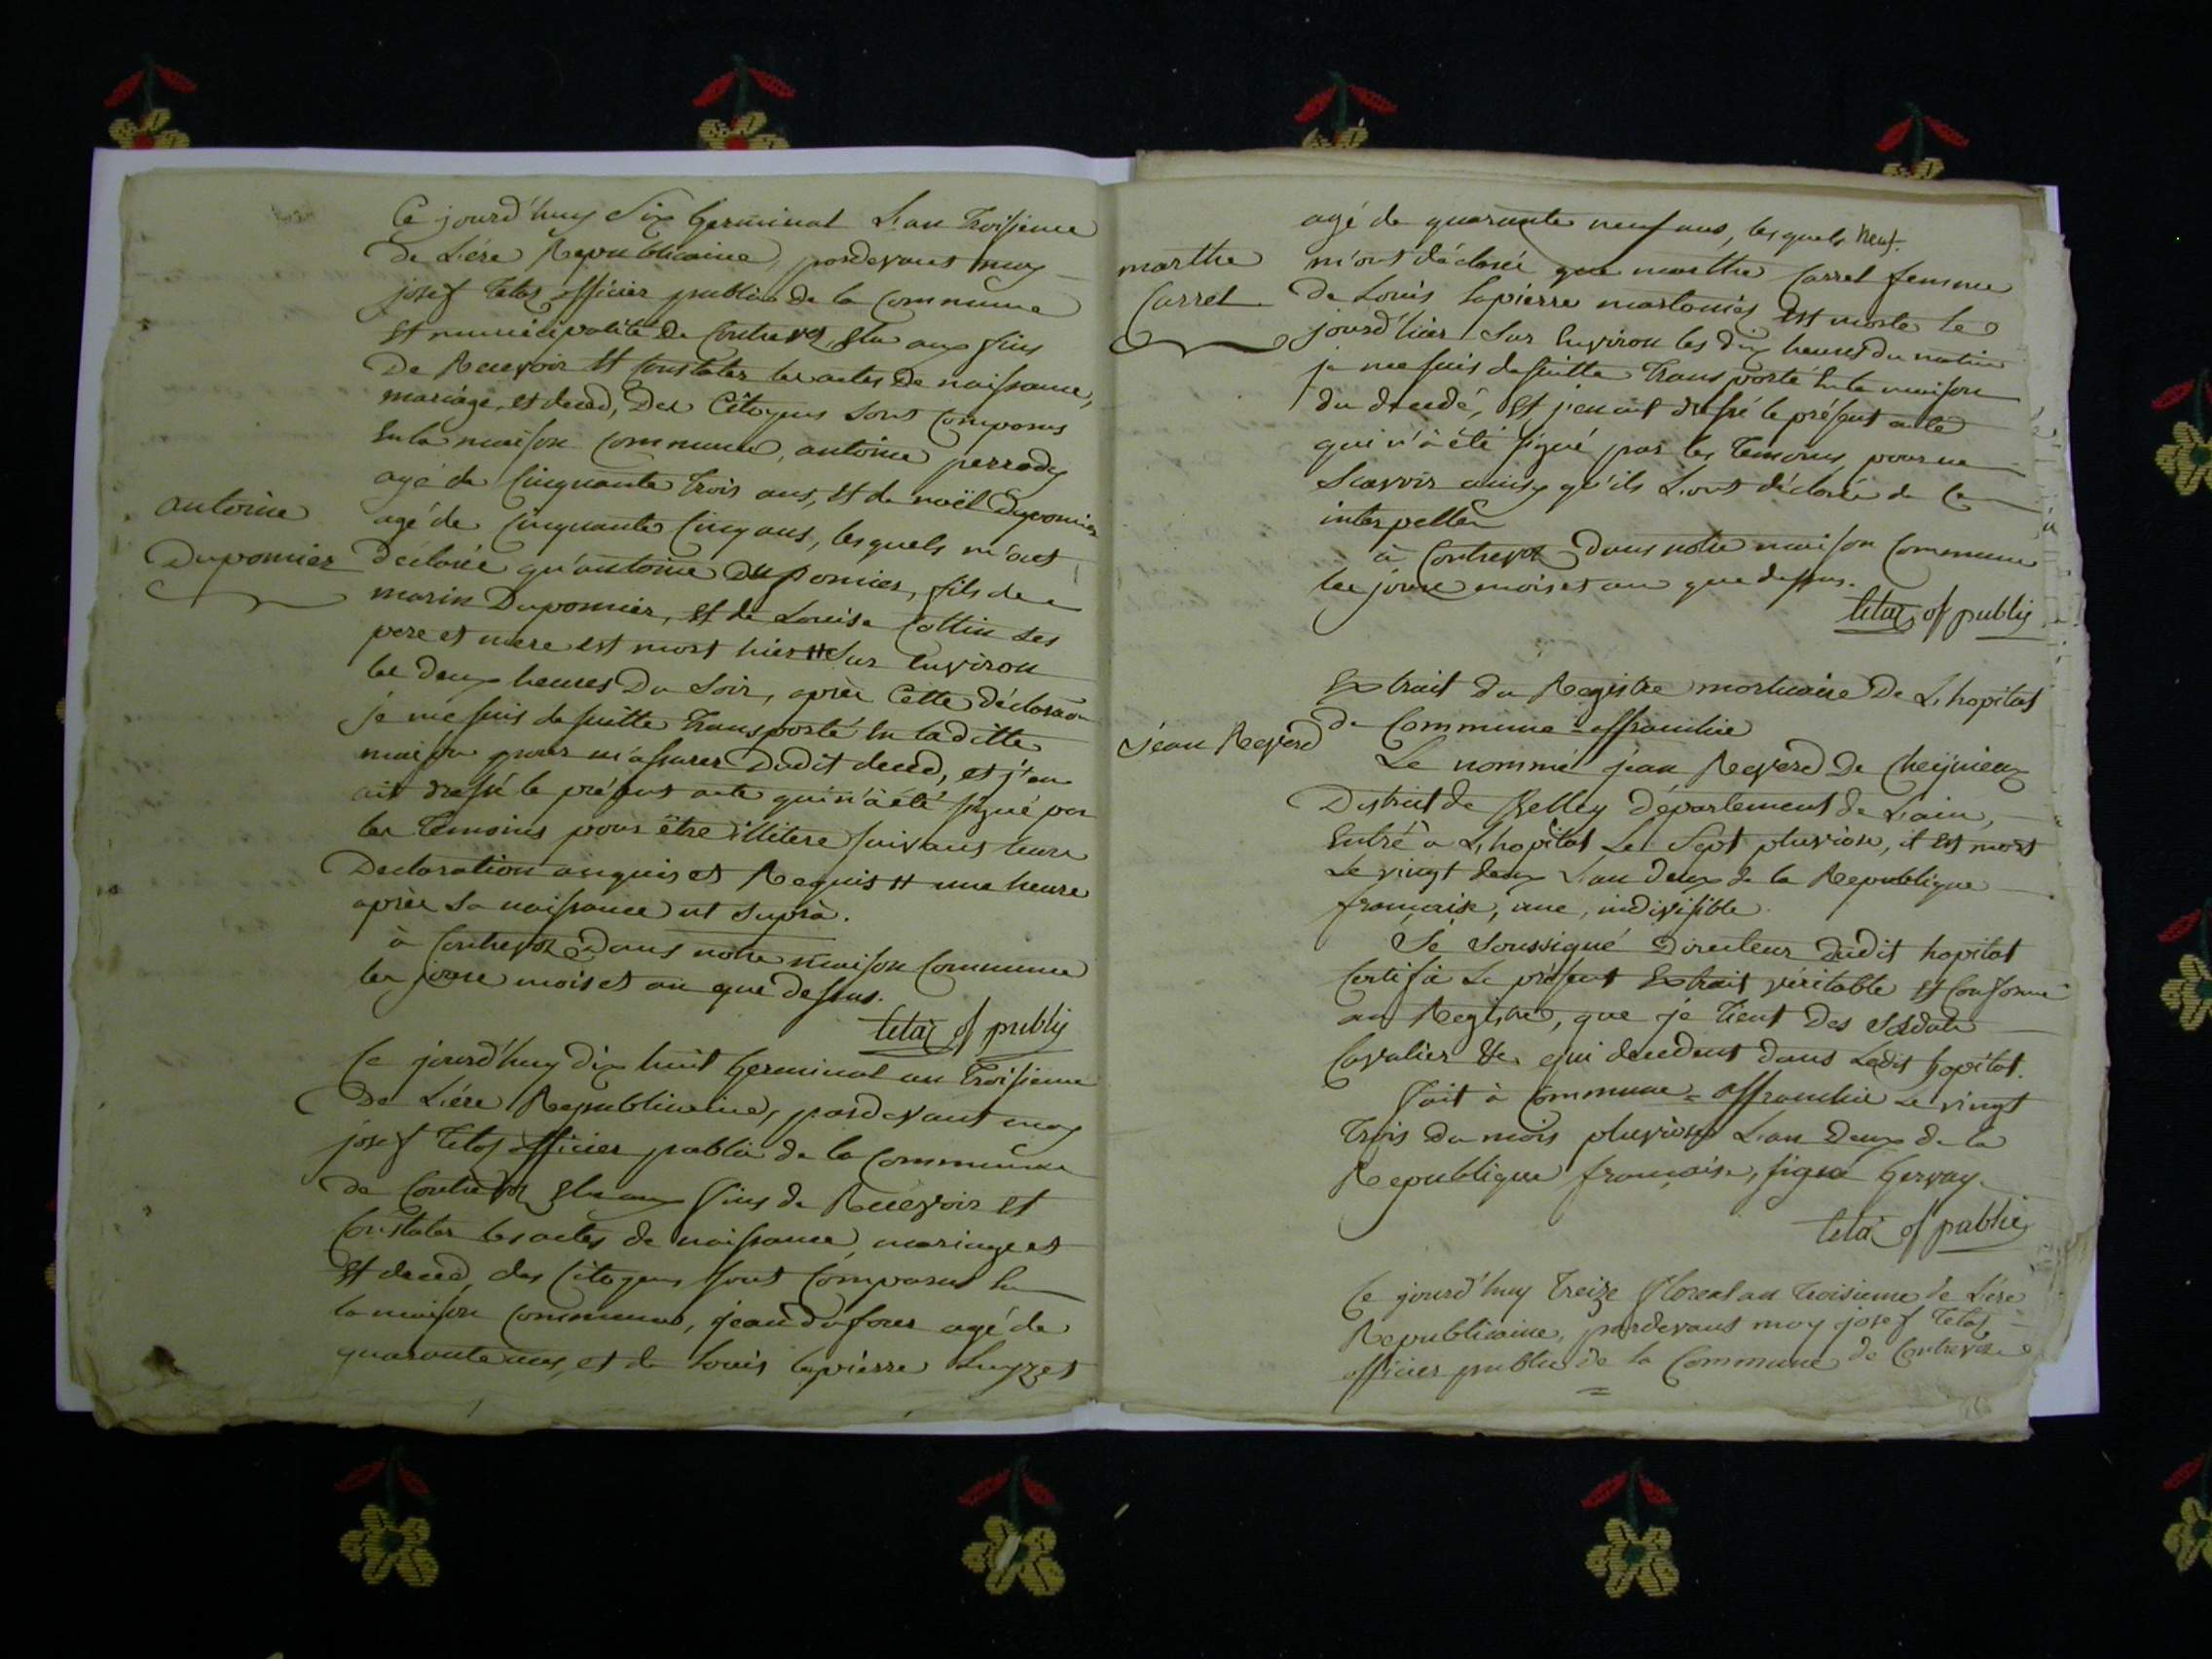 Ce jourd'huy Six Germinal L'an Troisieme
De L'ére Republicaine, pardevant moy
josef Tetaz officier public de la Commune
et municipalité de Contrevoz, elu aux fins
De Recevoir et Constater les actes De naissance,
mariage, et deced, Des Citoyens Sont Comparus
En la maison Commune, antoine perrody
agé de Cinquante Trois ans, et de noël Dupomier
antoine
agé de Cinquante Cinq ans, lesquels m'ont
Dupomier
Déclarée qu'antoine Dupomier, fils de
marin Dupomier, et de Louise Cottin Ses
pere et mere est mort hier # Sur Environ
les deux heures Du Soir, après Cette déclaraõn
je me suis de suitte Transporté En la ditte
maison pour m'assurer Dudit deced, et j'en
ait dressé le présent acte qui n'a été signé par
les Temoins pour être illitere suivant leurs
Declaration enquis et Requis # une heure
après Sa naissance ut Suprà.
à Contrevoz Dans notre maison Commune
les jour mois et an que dessus.
tetaz of public
Ce jourd'huy dix huit Germinal an Troisieme
De L'ére Republicaine, pardevant moy
josef Tetaz officier public de la Commune
de Contrevoz Elu aux fins de Recevoir et
Constater les actes de naissance, mariage et
et deced, des Citoyens sont Comparus En
la maison Commune, jean dufour agé de
quarante ans, et de Louis lapierre Luyzet
agé de quarante neuf ans, lesquels neuf.
marthe
Carrel
m'ont déclaré que marthe Carrel femme
de Louis Lapierre est morte le
jourd'hier Sur Environ les dix heures du matin
je me suis de suitte Transporté En la maison
du decedé, et j'en ait dressé le présent acte
qui n'a été signé par les Temoins pour ne
Scavoir ainsy qu'ils L'ont déclarée de Ce
interpellée
à Contrevoz Dans notre maison Commune
les jour mois et an que dessus.
tetaz of public
Extrait du Registre mortuaire De L'hopital
jean Reverd
de Commune=affranchie
Le nommé jean Reverd De Cheignieux
District de Belley Département de L'ain,
Entré à L'hopital Le Sept pluviose, il est mort
Le vingt deux L'an deux de la Republique
francaise, une, indivisible.
Je Soussigné Directeur dudit hopital
Certifie Le présent Extrait véritable et Conforme
au Registre, que je Tient Des Soldats
Cavalier &c. qui decedent dans Ledit hopital.
Fait à Commune=affranchie Le vingt
Trois du mois pluviose L'an Deux de la
Republique françoise, signé Gervay.
tetaz of public
Ce jourd'huy Treize floreal an Troisieme de L'ére
Republicaine, pardevant moy josef Tetaz
officier public de la Commune de Contrevoz